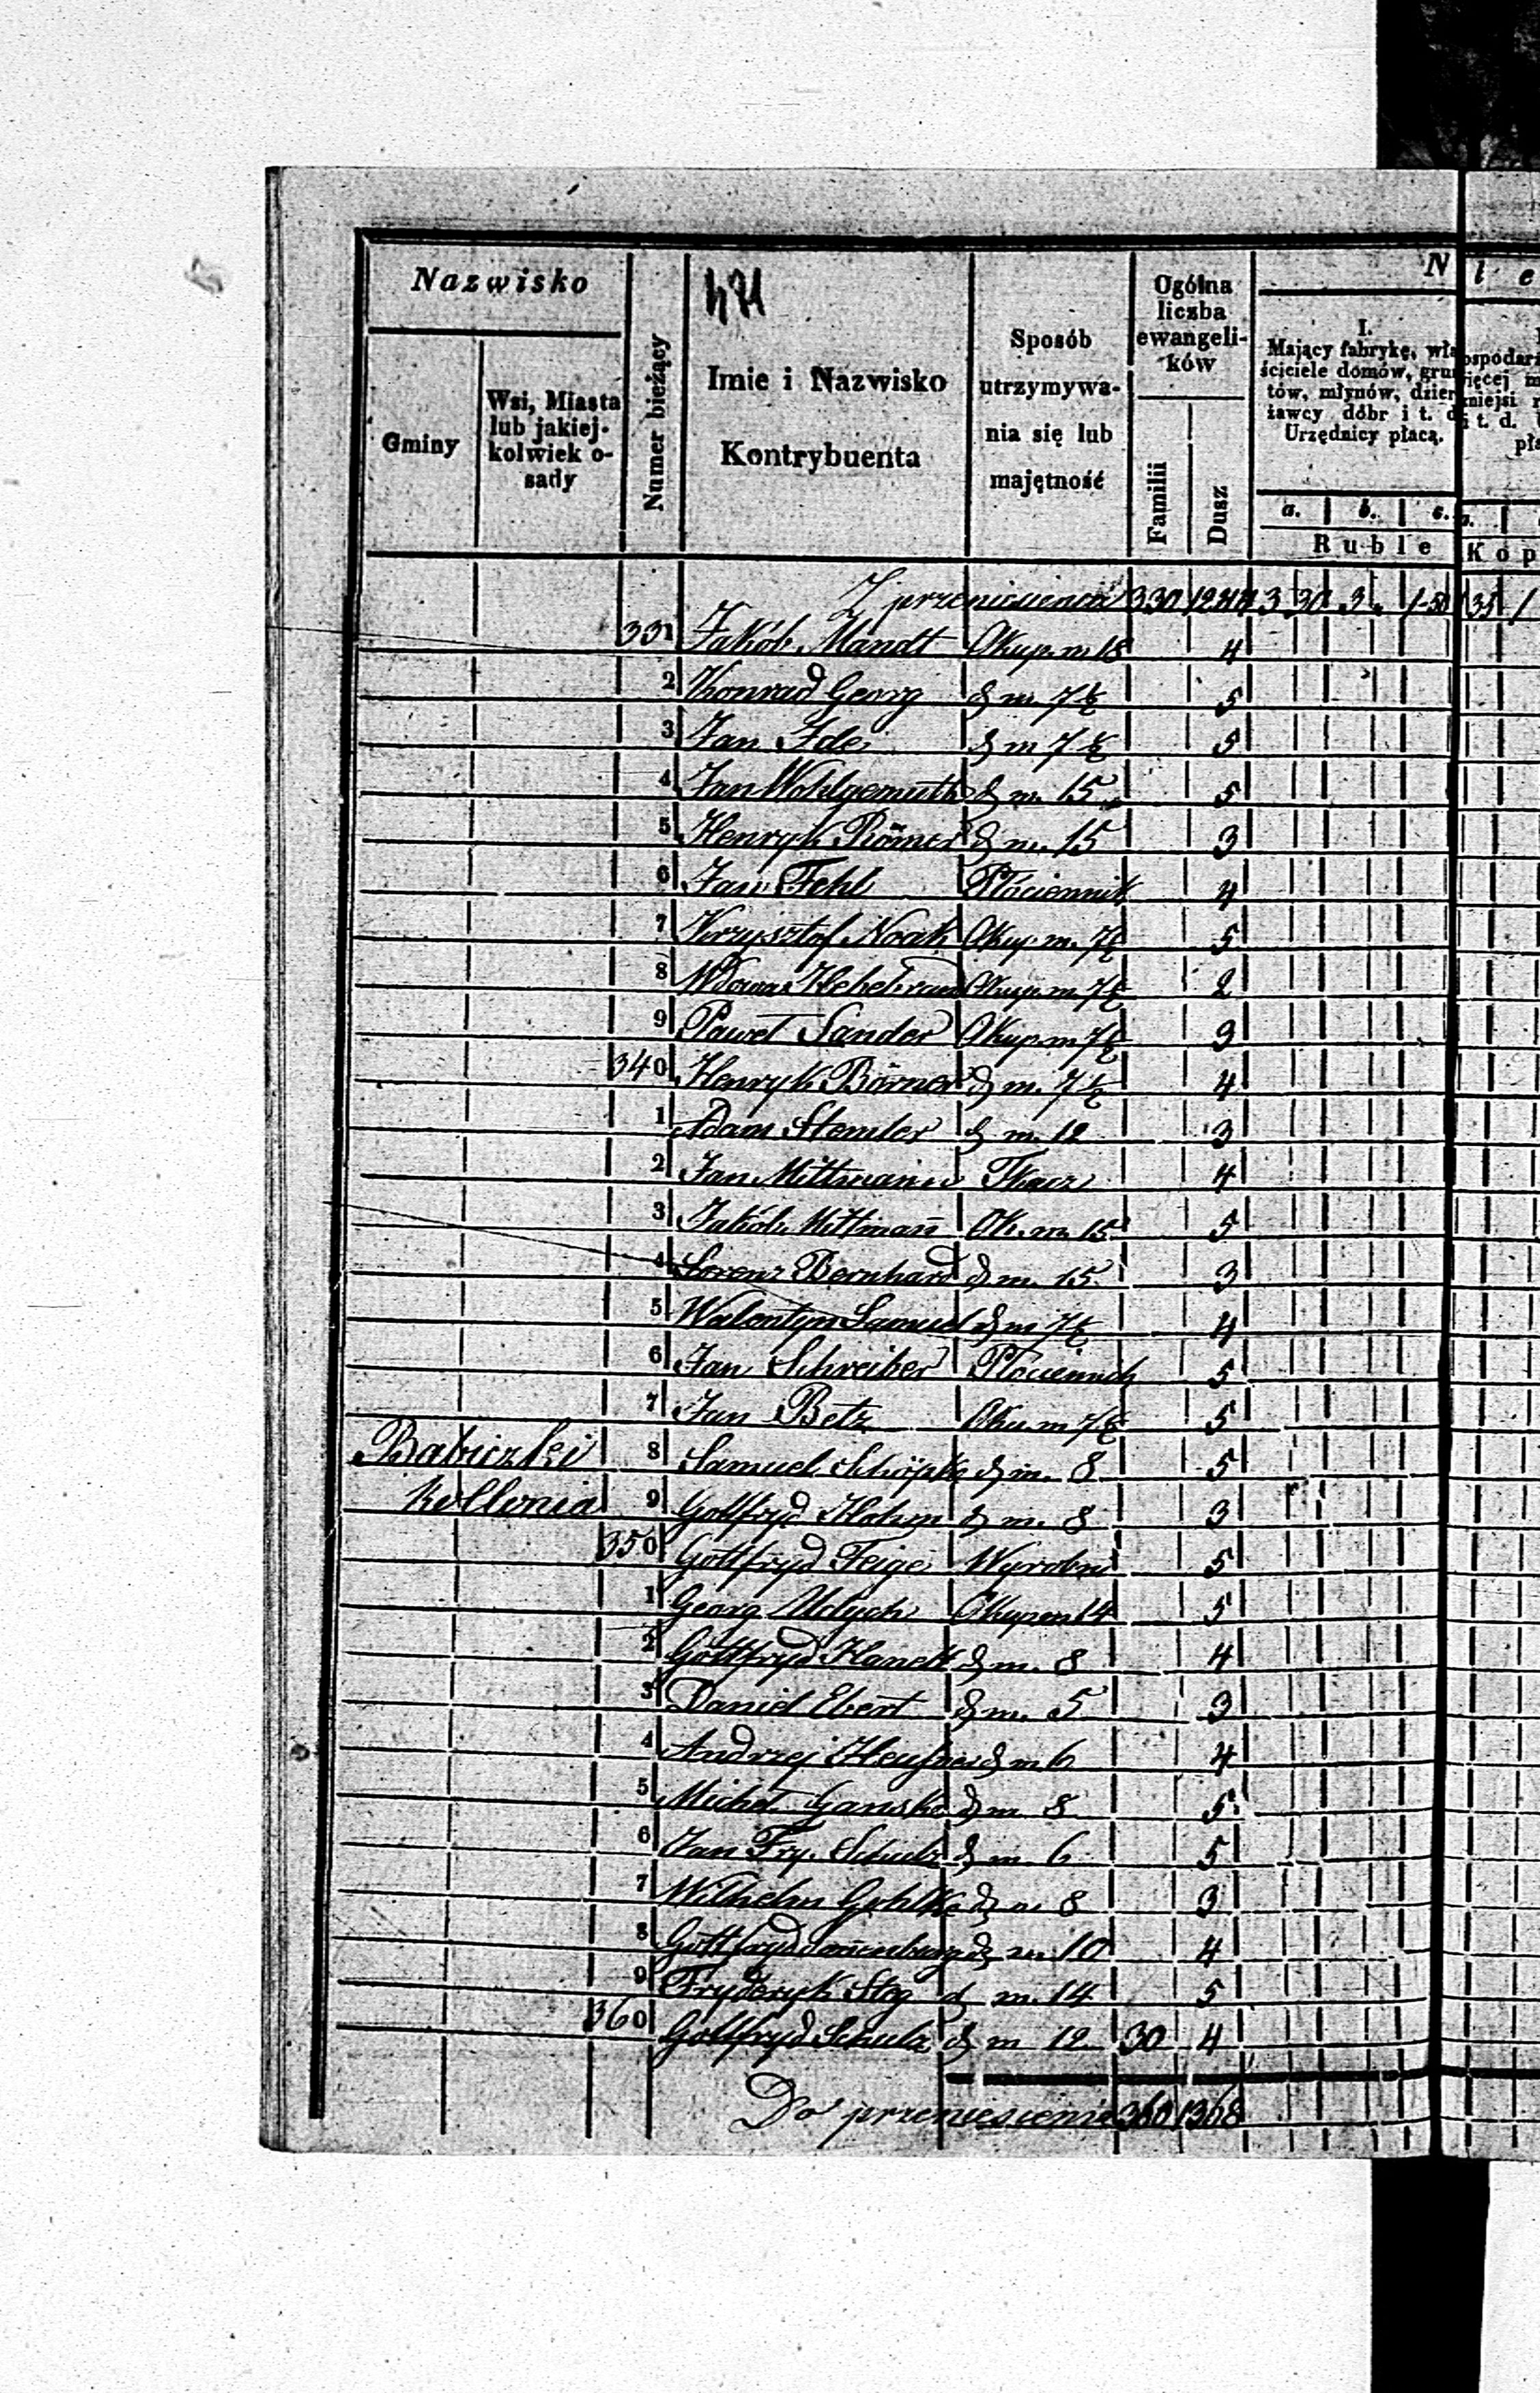 Nazwisko
Gminy
Wsi, Miasta
lub jakiej-
kolwiek o-
sady
Numer bieżący
471
Imie i Nazwisko
Kontrybuenta
Sposób
utrzymywa-
nia się lub
majętność
Ogólna
liczba
ewangeli-
ków
Familii
Dusz
N
I.
Mający fabrykę, wła
ściciele domów, grun
tów, młynów, dzier
żawcy dóbr i t. d.
Urzędnicy płacą.
a. b. c.
Ruble
l e
ospodar
ięcej m
kniejsi
i t. d.
pła
Kop
Z przeniesienia 330 1244 3 30 3 1-50 35 1
331 Jakób Mandt Okup. m 18 4
2 Konrad Georg d m. 7½ 5
3 Jan Ide d m 7½ 5
4 Jan Wohlgemuth d m. 15 5
5 Henryk Römer d m. 15 3
6 Jan Fehl Płociennik 4
7 Krysztof Noak Okup. m. 7½ 5
8 Wdowa Okup. m. 7½ 2
9 Paweł Sander Okup. m 7½ 3
340 Henryk Börner d m. 7½ 4
1 Adam Stemler d m. 12 3
2 Jan Mittmann Tkacz 4
3 Jakób Mittmañ Ok. m 15 5
4 Lorenz Bernhard d m. 15 3
5 Walentyn Samuel d m 7½ 4
6 Jan Schreiber Płociennik 5
7 Jan Betz Oku. m 7½ 5
Babiczki 8 Samuel Schöpke d m. 8 5
Kollonia 9 Gottfryd Hohm d m. 8 3
350 Gottfryd Feige Wyrobni 5
1 Georg Okup m 14 5
2 Gottfryd d m. 8 4
3 Daniel Ebert d m. 5 3
4 Andrzej d m 6 4
5 Michał Ganske d m 8 5
6 Jan Fry. Schulz d m. 6 5
7 Wilhelm Gohlke d m 8 3
8 Gottfryd d m. 10 4
9 Fryderyk Steg d m. 14 5
360 Gottfryd Schulz d m 12 30 4
Do przeniesienia 360 1368